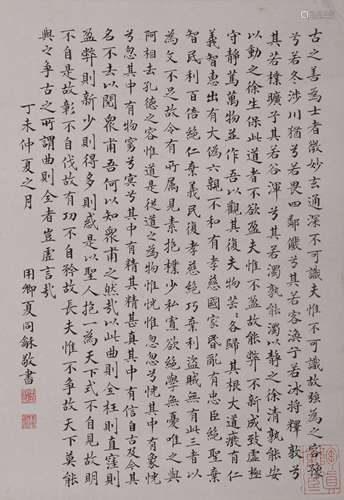 古之善為士者微妙玄通深不可識夫惟不可識故強為之容豫
兮若冬涉川猶兮若畏四鄰儼兮其若客渙兮若冰將釋敦兮
其若樸曠兮其若谷渾兮其若濁孰能濁以靜之徐清孰能安
以動之徐生保此道者不欲盈夫惟不盈故能弊不新成致虛極
守靜篤萬物並作吾以觀其復夫物芸芸各歸其根大道廢有仁
義智惠出有大偽六親不和有孝慈國家昏亂有忠臣絕聖棄
智民利百倍絕仁棄義民復孝慈絕巧棄利盜賊無有此三者以
為文不足故令有所屬見素抱樸少私寡欲絕學無憂唯之與
阿相去孔德之容惟道是從道之為物惟恍惟忽忽兮恍其中有象恍
兮忽其中有物窈兮冥兮其中有精其精甚真其中有信自古及今其
名不去以閱衆甫吾何以知衆甫之然哉以此曲則全枉則直窪則
盈弊則新少則得多則惑是以聖人抱一為天下式不自見故明
不自是故彰不自伐故有功不自矜故長夫惟不爭故天下莫能
與之爭古之所謂曲則全者豈虛言哉
丁未仲夏之月
用卿夏同龢敬書